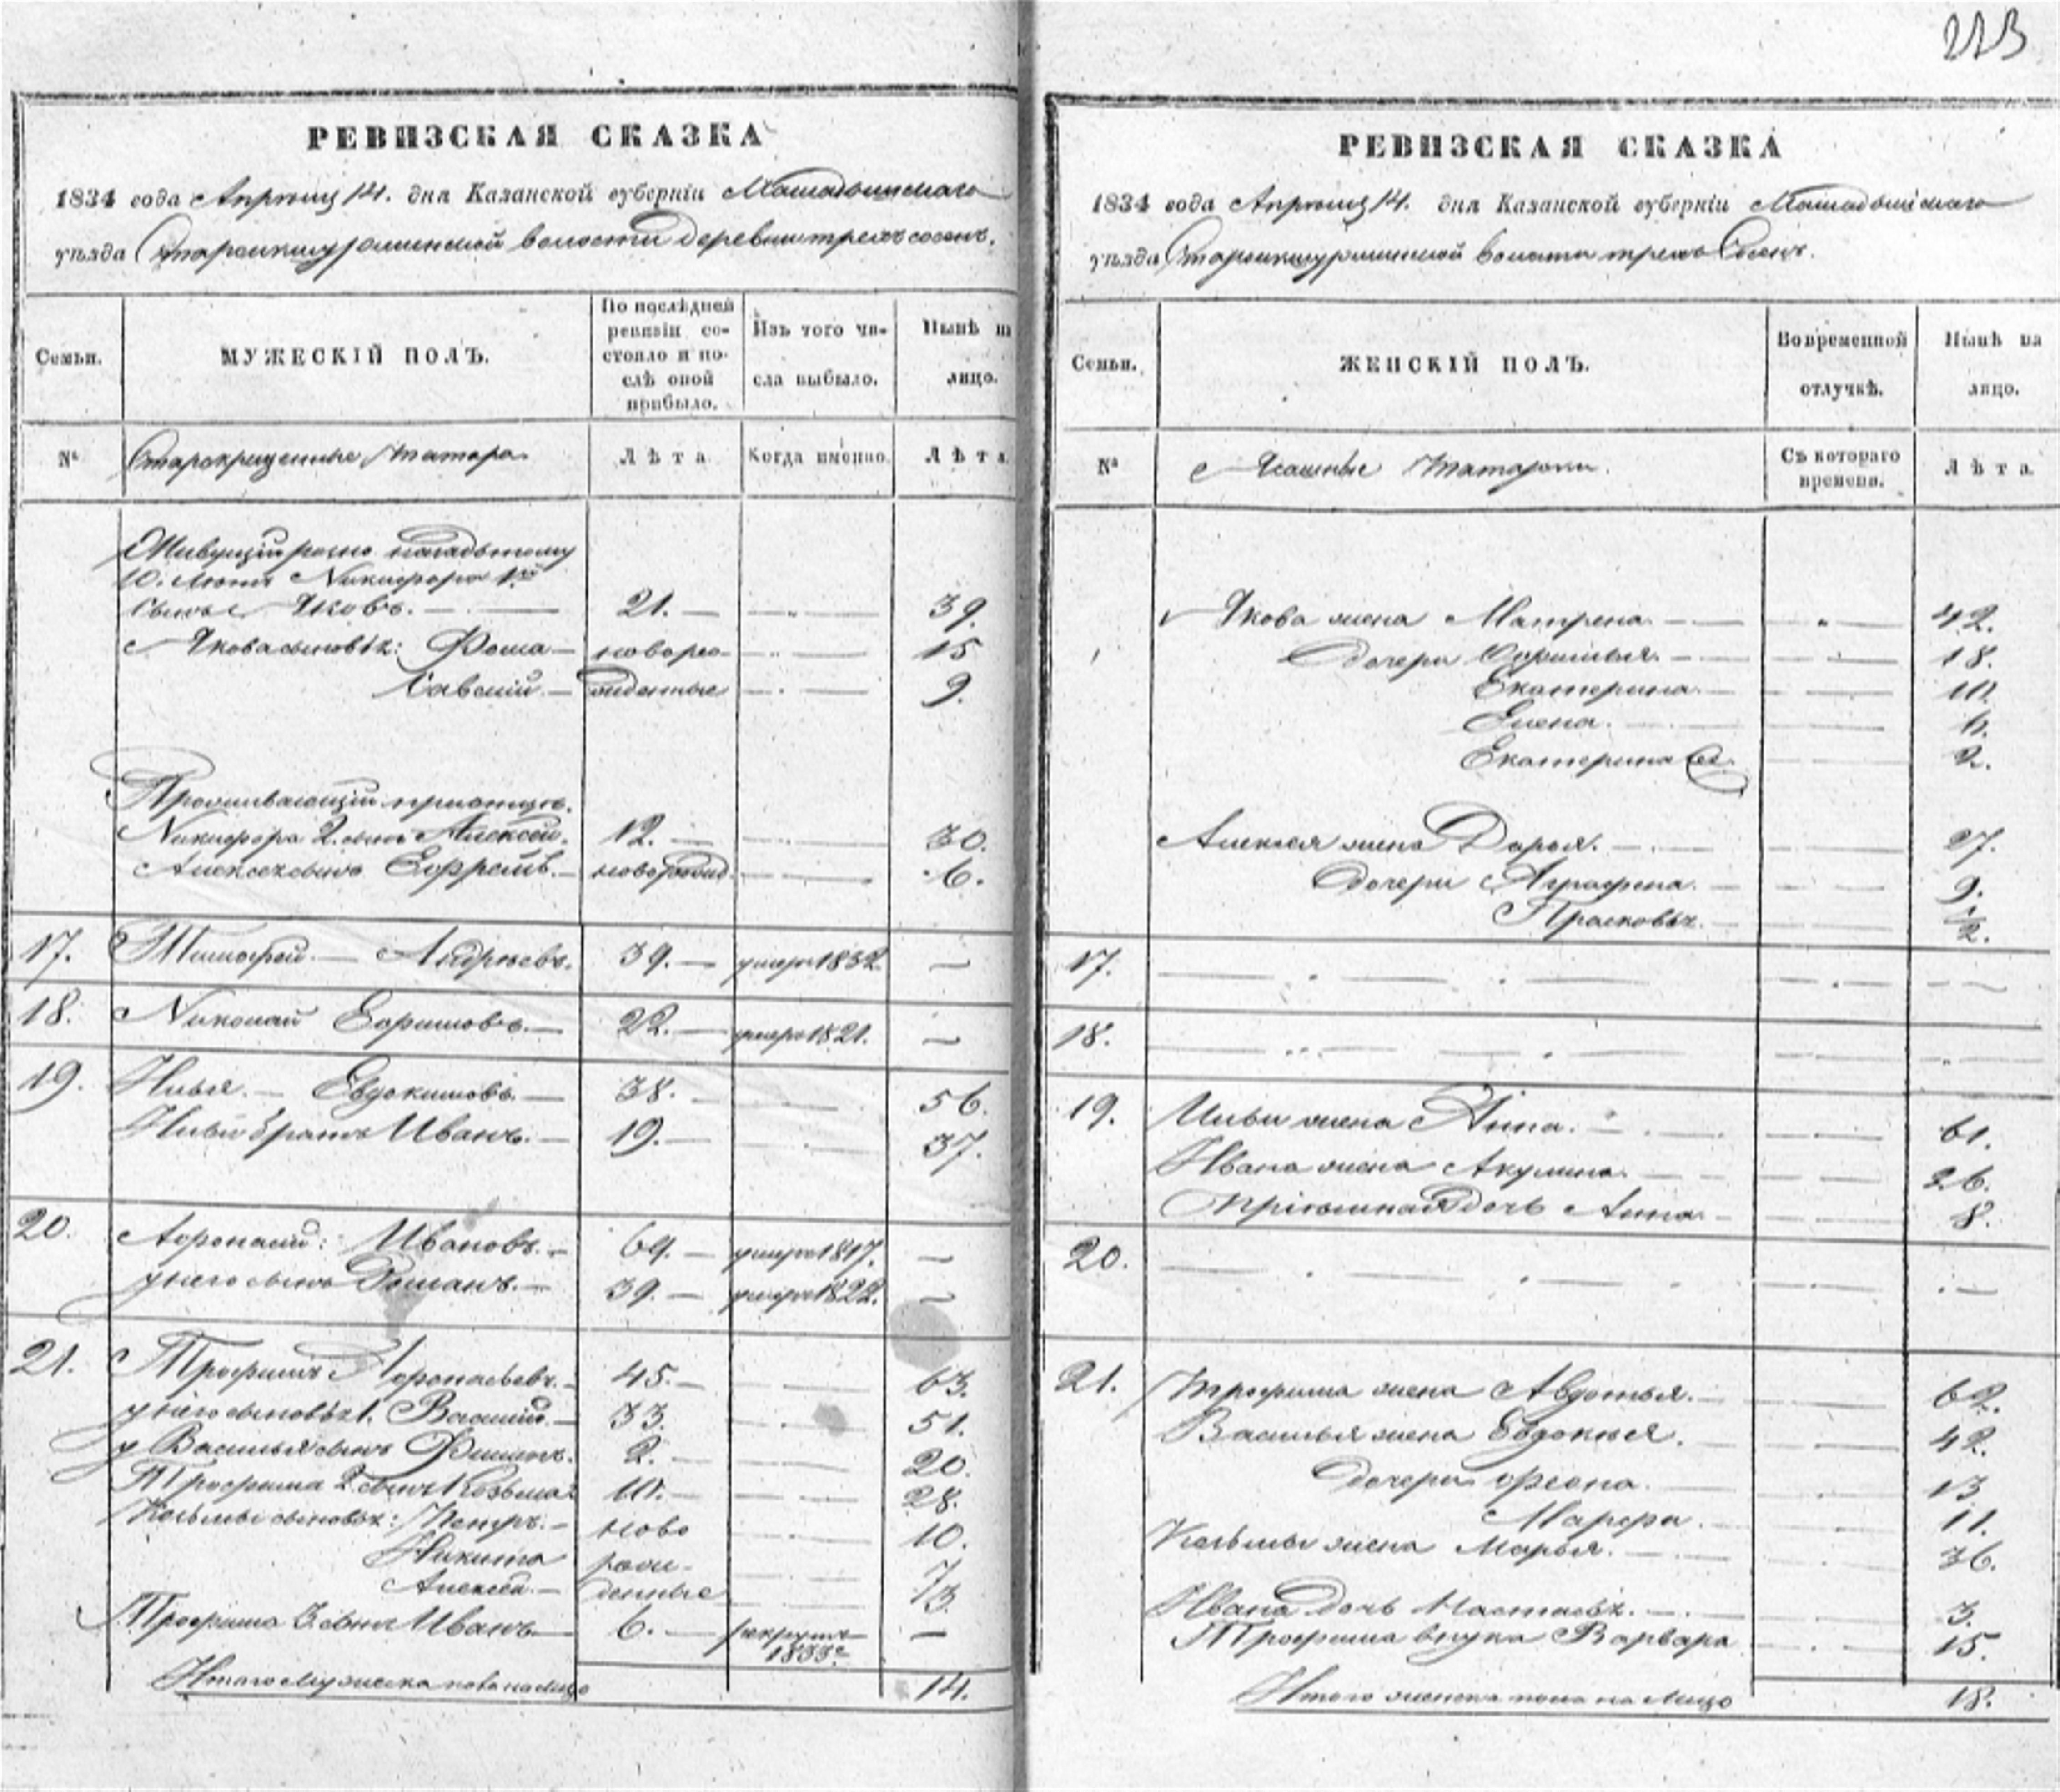 223
РЕВИЗСКАЯ СКАЗКА
1834 года Апреля 14. дня Казанской губерніи Мамадышскаго
уѣзда волости деревни трехъ сосенъ.
Семьи.
МУЖЕСКІЙ ПОЛЪ.
По послѣдней ревизіи состояло и послѣ оной прибыло.
Изъ того числа выбыло.
Нынѣ на лицо.
№
Старокрещенные татара
Лѣта
Когда именно.
Лѣта
10. Никифора 1го
сынъ Яковъ. — 21. — 39.
Якова сыновья: Фома — новоро- 15
Савелій. — жденные 9.
Проживающій
Никифора 2. сынъ Алексей. 12. — 30.
Алексея сынъ Ефремъ. — новорожд. 6.
17. Тимофей. — Андреевъ. 39. — умеръ 1832. —
18. Николай Ефимовъ. — 22. — умеръ 1821. —
19. Илья. — Евдокимовъ. — 38. — 56.
Ильи братъ Иванъ. — 19. — 37.
20. Афонасій: Ивановъ. — 69. — умеръ 1817. —
у него сынъ Романъ. — 39. — умеръ 1822. —
21. Трофимъ Афонасьевъ. — 45. — 63.
у него сыновья 1. Василій. — 33. 51.
у Василья сынъ Филипъ. 2. — 20.
Трофима 2. сынъ Козьма 10. — 28.
Козьмы сыновья: Петръ. — ново 10.
Никита рож- 7
Алексей. — денные 3.
Трофима 3. сынъ Иванъ — 6. — рекрутъ 1833 г. —
Итого мужеска пола на лицо 14.
РЕВИЗСКАЯ СКАЗКА
1834 года Апреля 14. дня Казанской губерніи Мамадышскаго
уѣзда волости трехъ Сосенъ.
Семьи.
ЖЕНСКІЙ ПОЛЪ.
Во временной отлучкѣ.
Нынѣ на лицо.
№
Ясашные татарки.
Съ котораго времени.
Лѣта
Якова жена Матрена — 42.
Дочери 18.
Екатерина. 10.
Елена. 6.
Екатерина 2.
Алексея жена Дарья. — 27.
Дочери Аграфена. 9.
Прасковья. 1/2.
17.
18.
19. Ильи жена Анна. 61.
Ивана жена Акулина. 26.
дочь Анна 8.
20.
21. Трофима жена Авдотья. 62.
Василья жена Евдокея. 42.
Дочери 13
Марфа. 11.
Козьмы жена Марья. 36.
Ивана дочь Настасья. 3.
Трофима внука Варвара 15.
Итого женска пола на лицо 18.